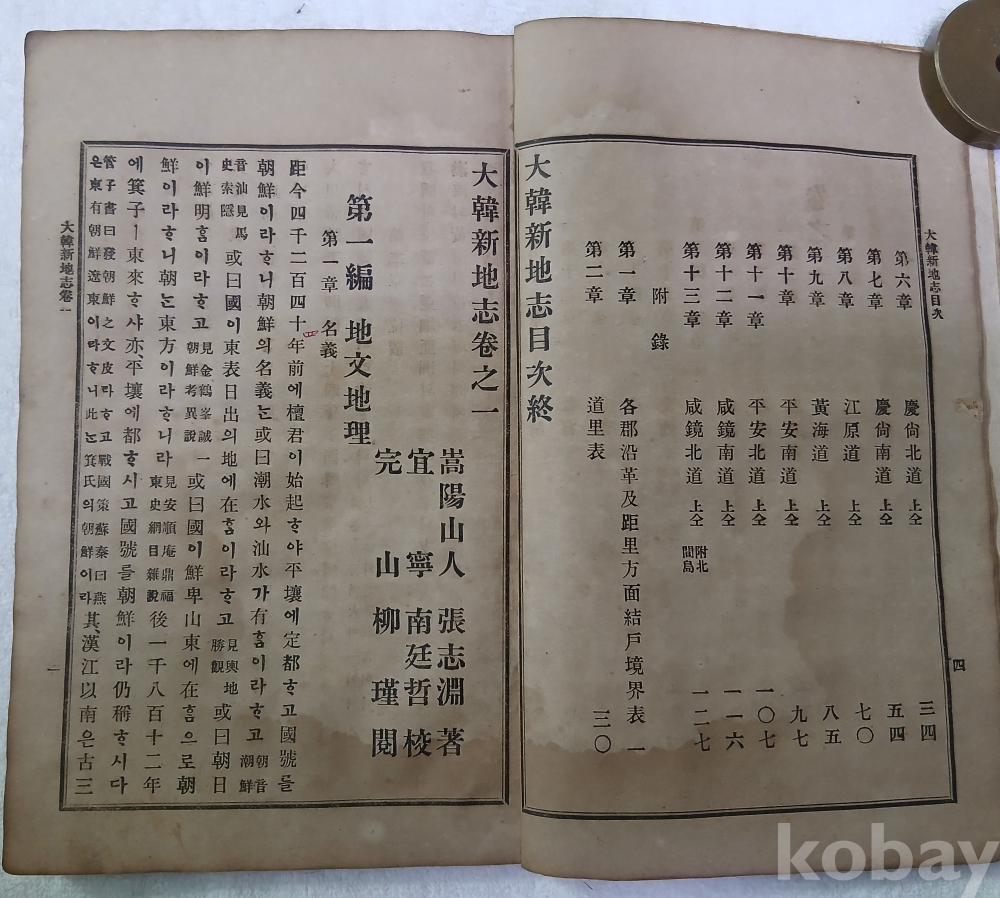 大韓新地志目次
第六章 慶尙北道 上仝 三四
第七章 慶尙南道 上仝 五四
第八章 江原道 上仝 七〇
第九章 黃海道 上仝 八五
第十章 平安南道 上仝 九七
第十一章 平安北道 上仝 一〇七
第十二章 咸鏡南道 上仝 一一六
第十三章 咸鏡北道 上仝 附北間島 一二七
附錄
第一章 各郡沿革及距里方面結戶境界表 一
第二章 道里表 三〇
大韓新地志目次終
四
大韓新地志卷之一
嵩陽山人 張志淵 著
宜寧 南廷哲 校
完山 柳瑾 閱
第一編 地文地理
第一章 名義
距今四千二百四十年前에檀君이始起ᄒᆞ야平壤에定都ᄒᆞ고國號를
朝鮮이라ᄒᆞ니朝鮮의名義ᄂᆞᆫ或曰潮水와汕水가有ᄒᆞᆷ이라ᄒᆞ고朝音潮鮮
音汕見馬史索隱或曰國이東表日出의地에在ᄒᆞᆷ이라ᄒᆞ고見輿地勝觀或曰朝日
이鮮明ᄒᆞᆷ이라ᄒᆞ고見金鶴峯誠一朝鮮考異說或曰國이鮮卑山東에在ᄒᆞᆷ으로朝
鮮이라ᄒᆞ니朝ᄂᆞᆫ東方이라ᄒᆞ니라見安順庵鼎福東史綱目雜說後一千八百十二年
에箕子ㅣ東來ᄒᆞ샤亦平壤에都ᄒᆞ시고國號를朝鮮이라仍稱ᄒᆞ시다
管子書曰發朝鮮之文皮라ᄒᆞ고戰國策蘇秦曰燕은東有朝鮮遼東이라ᄒᆞ니此ᄂᆞᆫ箕氏의朝鮮이라其漢江以南은古三
大韓新地志卷一
一